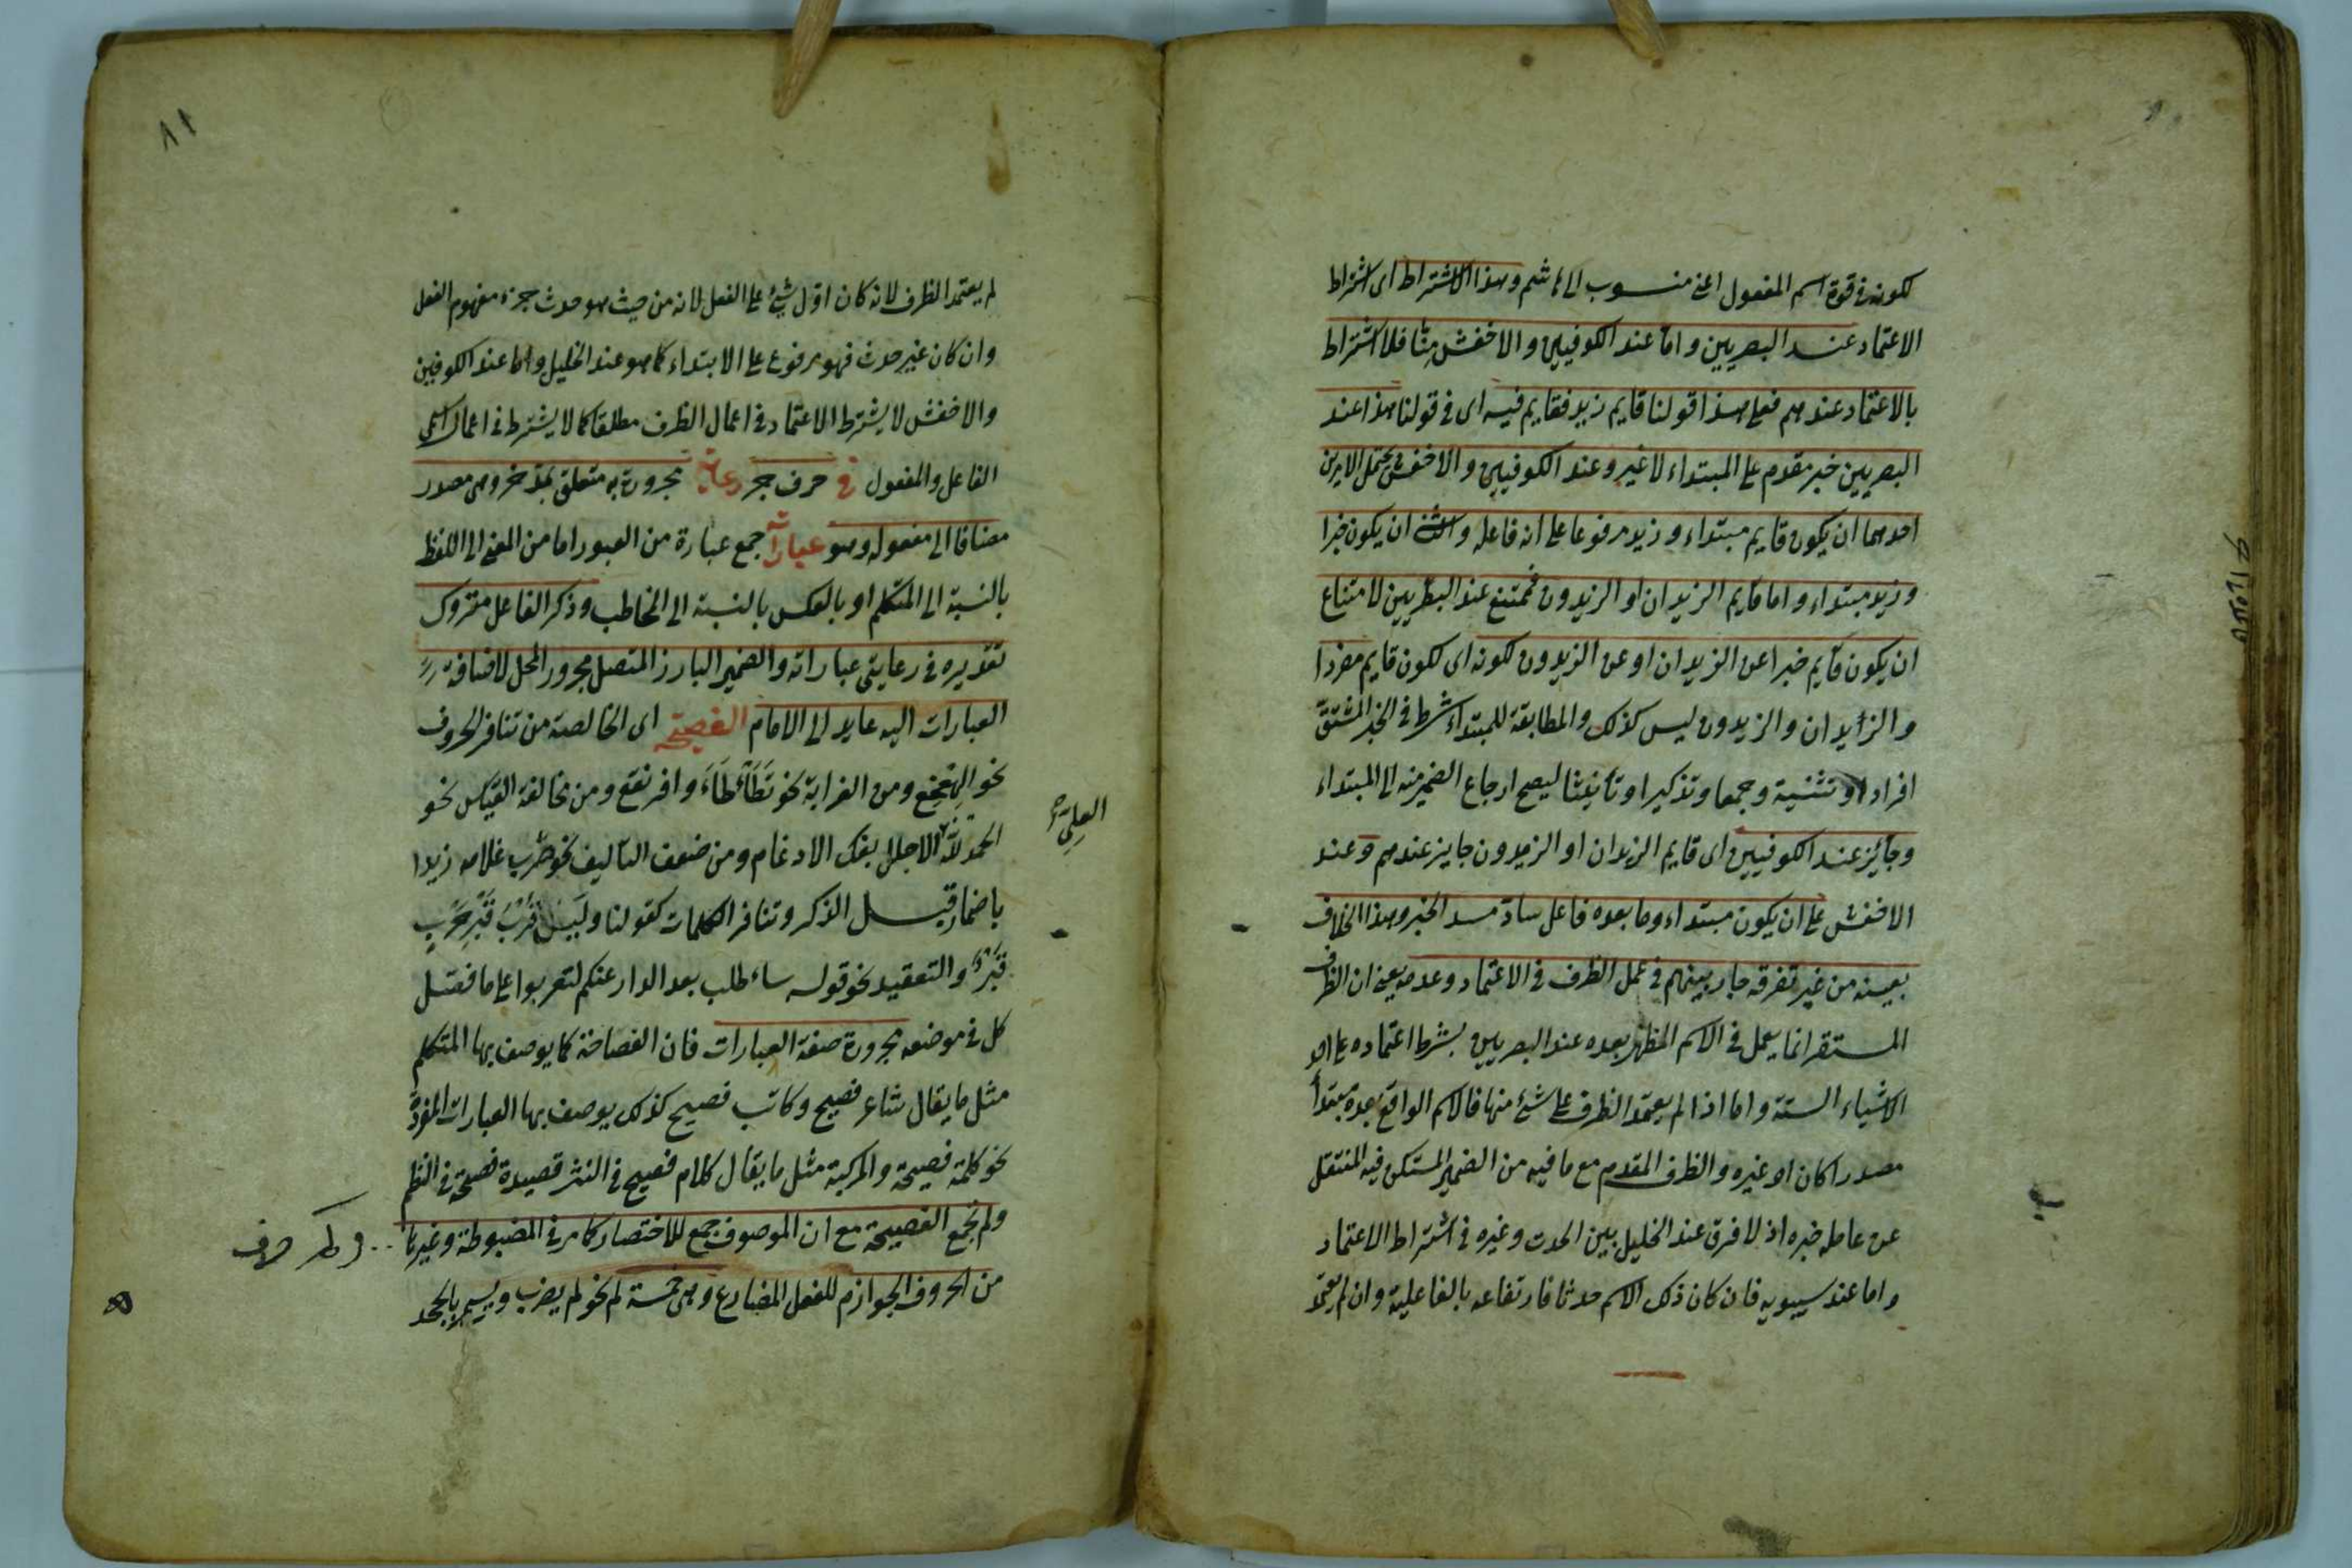 لكونه في قوة اسم المفعول اعني منسوب الى هاشم وهذا الاشتراط اى اشتراط
الاعتماد عند البصريين واما عند الكوفيين والاخفش منا فلا اشتراط
بالاعتماد عندهم فعلى هذا قولنا قايم زيد فقايم فيه اى في قولنا هذا عند
البصريين خبر مقدم على المبتداء لا غير وعند الكوفيين والاخفش يحتمل الامرين
احدهما ان يكون قايم مبتداء وزيد مرفوعا على انه فاعله والثاني ان يكون خبرا
وزيد مبتداء واما قايم الزيدان او الزيدون فممتنع عند البصريين لامتناع
ان يكون قايم خبرا عن الزيدان او عن الزيدون لكونه اى لكون قايم مفردا
والزيدان والزيدون ليس كذلك والمطابقة للمبتداء شرط في الخبر المشتق
افرادا وتثنية وجمعا وتذكيرا وتأنيثا ليصح ارجاع الضمير منه الى المبتداء
وجائز عند الكوفيين اى قايم الزيدان او الزيدون جايز عندهم وعند
الاخفش على ان يكون مبتداء وما بعده فاعل ساد مسد الخبر وهذا الخلاف
بعينه من غير تفرقه جار بينهم في عمل الظرف في الاعتماد وعدمه يعني ان الظرف
المستقر انما يعمل في الاسم المظهر بعده عند البصريين بشرط اعتماده على احد
الاشياء الستة واما اذا لم يعتمد الظرف على شئ منها فالاسم الواقع بعده مبتدأ
مصدرا كان او غيره والظرف المقدم مع ما فيه من الضمير المستكن فيه المنتقل
عن عامله خبره اذ لا فرق عند الخليل بين الحدث وغيره في اشتراط الاعتماد
واما عند سيبويه فان كان ذلك الاسم حدثا فارتفاعه بالفاعلية وان لم يعتمد
٨١
لم يعتمد الظرف لانه كان اول شئ على الفعل لانه من حيث هو حدث جزء مفهوم الفعل
وان كان غير حدث فهو مرفوع على الابتداء كما هو عند الخليل واما عند الكوفيين
والاخفش لا يشترط الاعتماد في اعمال الظرف مطلقا كما لا يشترط في اعمال اسمى
الفاعل والمفعول في حرف جر رعاية مجرورة به متعلق وهى مصدر
مضافا الى مفعوله وهو عباراته جمع عبارة من العبور اما من المعنى الى اللفظ
بالنسبة الى المتكلم او بالعكس بالنسبة الى المخاطب وذكر الفاعل متروك
تقديره في رعايتى عباراته والضمير البارز المتصل مجرور المحل لاضافة
العبارات اليه عايد الى الامام الفصيحة اى الخالصة من تنافر الحروف
نحو الهعخع ومن الغرابة نحو تكأكأ وافرنقع ومن مخالفة القياس نحو
الحمد لله الاجلل بفك الادغام ومن ضعف التأليف نحو ضرب غلامه زيدا
العلى
باضمار قبل الذكر وتنافر الكلمات كقولنا وليس قرب قبر حرب
قبر والتعقيد نحو قوله سأطلب بعد الدار عنكم لتقربوا على ما فصل
كل في موضعه مجرورة صفة العبارات فان الفصاحة كما يوصف بها المتكلم
مثل ما يقال شاعر فصيح وكاتب فصيح كذلك يوصف بها العبارات المفردة
نحو كلمة فصيحة والمركبة مثل ما يقال كلام فصيح في النثر قصيدة فصيحة في النظم
ولم يجمع الفصيحة مع ان الموصوف جمع للاختصار كما مر في المضبوطة وغيرها
من الحروف الجوازم للفعل المضارع وهى خمسة لم نحو لم يضرب ويسمى بالجحد